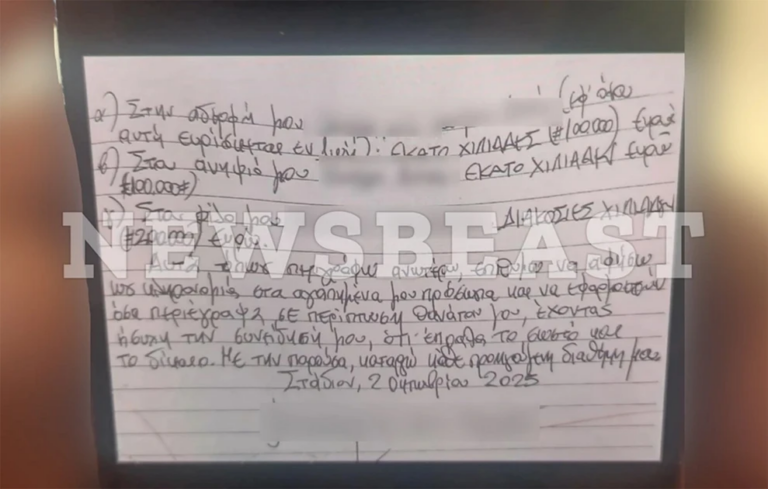 α) Στην αδερφή μου (εφ' όσον
αυτή ευρίσκεται εν ζωή): ΕΚΑΤΟ ΧΙΛΙΑΔΕΣ (#100.000) Ευρώ
β) Στον ανιψιό μου ΕΚΑΤΟ ΧΙΛΙΑΔΕΣ Ευρώ
#100.000#)
γ) Στον φίλο μου ΔΙΑΚΟΣΙΕΣ ΧΙΛΙΑΔΕΣ
(#200.000) Ευρώ
NEWSBEAST
Αυτά, όπως περιγράφω ανωτέρω, επιθυμώ να αφήσω
ως κληρονομιά στα αγαπημένα μου πρόσωπα και να εφαρμοστούν
όσα περιέγραψα, σε περίπτωση θανάτου μου, έχοντας
ήσυχη την συνείδησή μου, ότι έπραξα το σωστό και
το δίκαιο. Με την παρούσα, καταργώ κάθε προηγούμενη διαθήκη μου.
2 Οκτωβρίου 2025